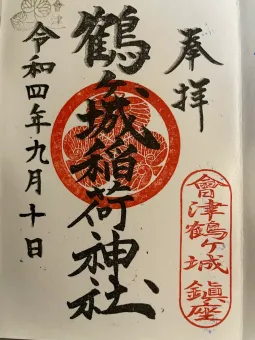 奉拝
鶴ヶ城稲荷神社
令和四年九月十日
會津鶴ヶ城 鎮座